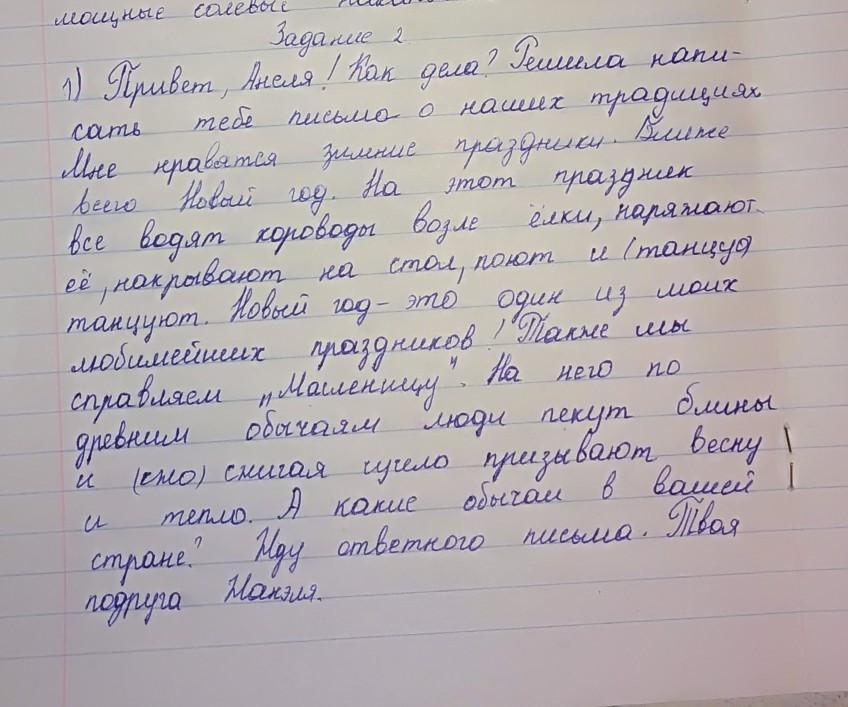 мощные солевые
Задание 2
1) Привет, Анеля! Как дела? Решила напи-
сать тебе письмо о наших традициях
Мне нравятся зимние праздники. Ближе
всего Новый год. На этот праздник
все водят хороводы возле ёлки, наряжают
её, накрывают на стол, поют и (танцую)
танцуют. Новый год - это один из моих
любимейших праздников! Также мы
справляем „Масленицу". На него по
древним обычаям люди пекут блины
и (сжо) сжигая чучело призывают весну
и тепло. А какие обычаи в вашей
стране? Жду ответного письма. Твоя
подруга Нанэля.